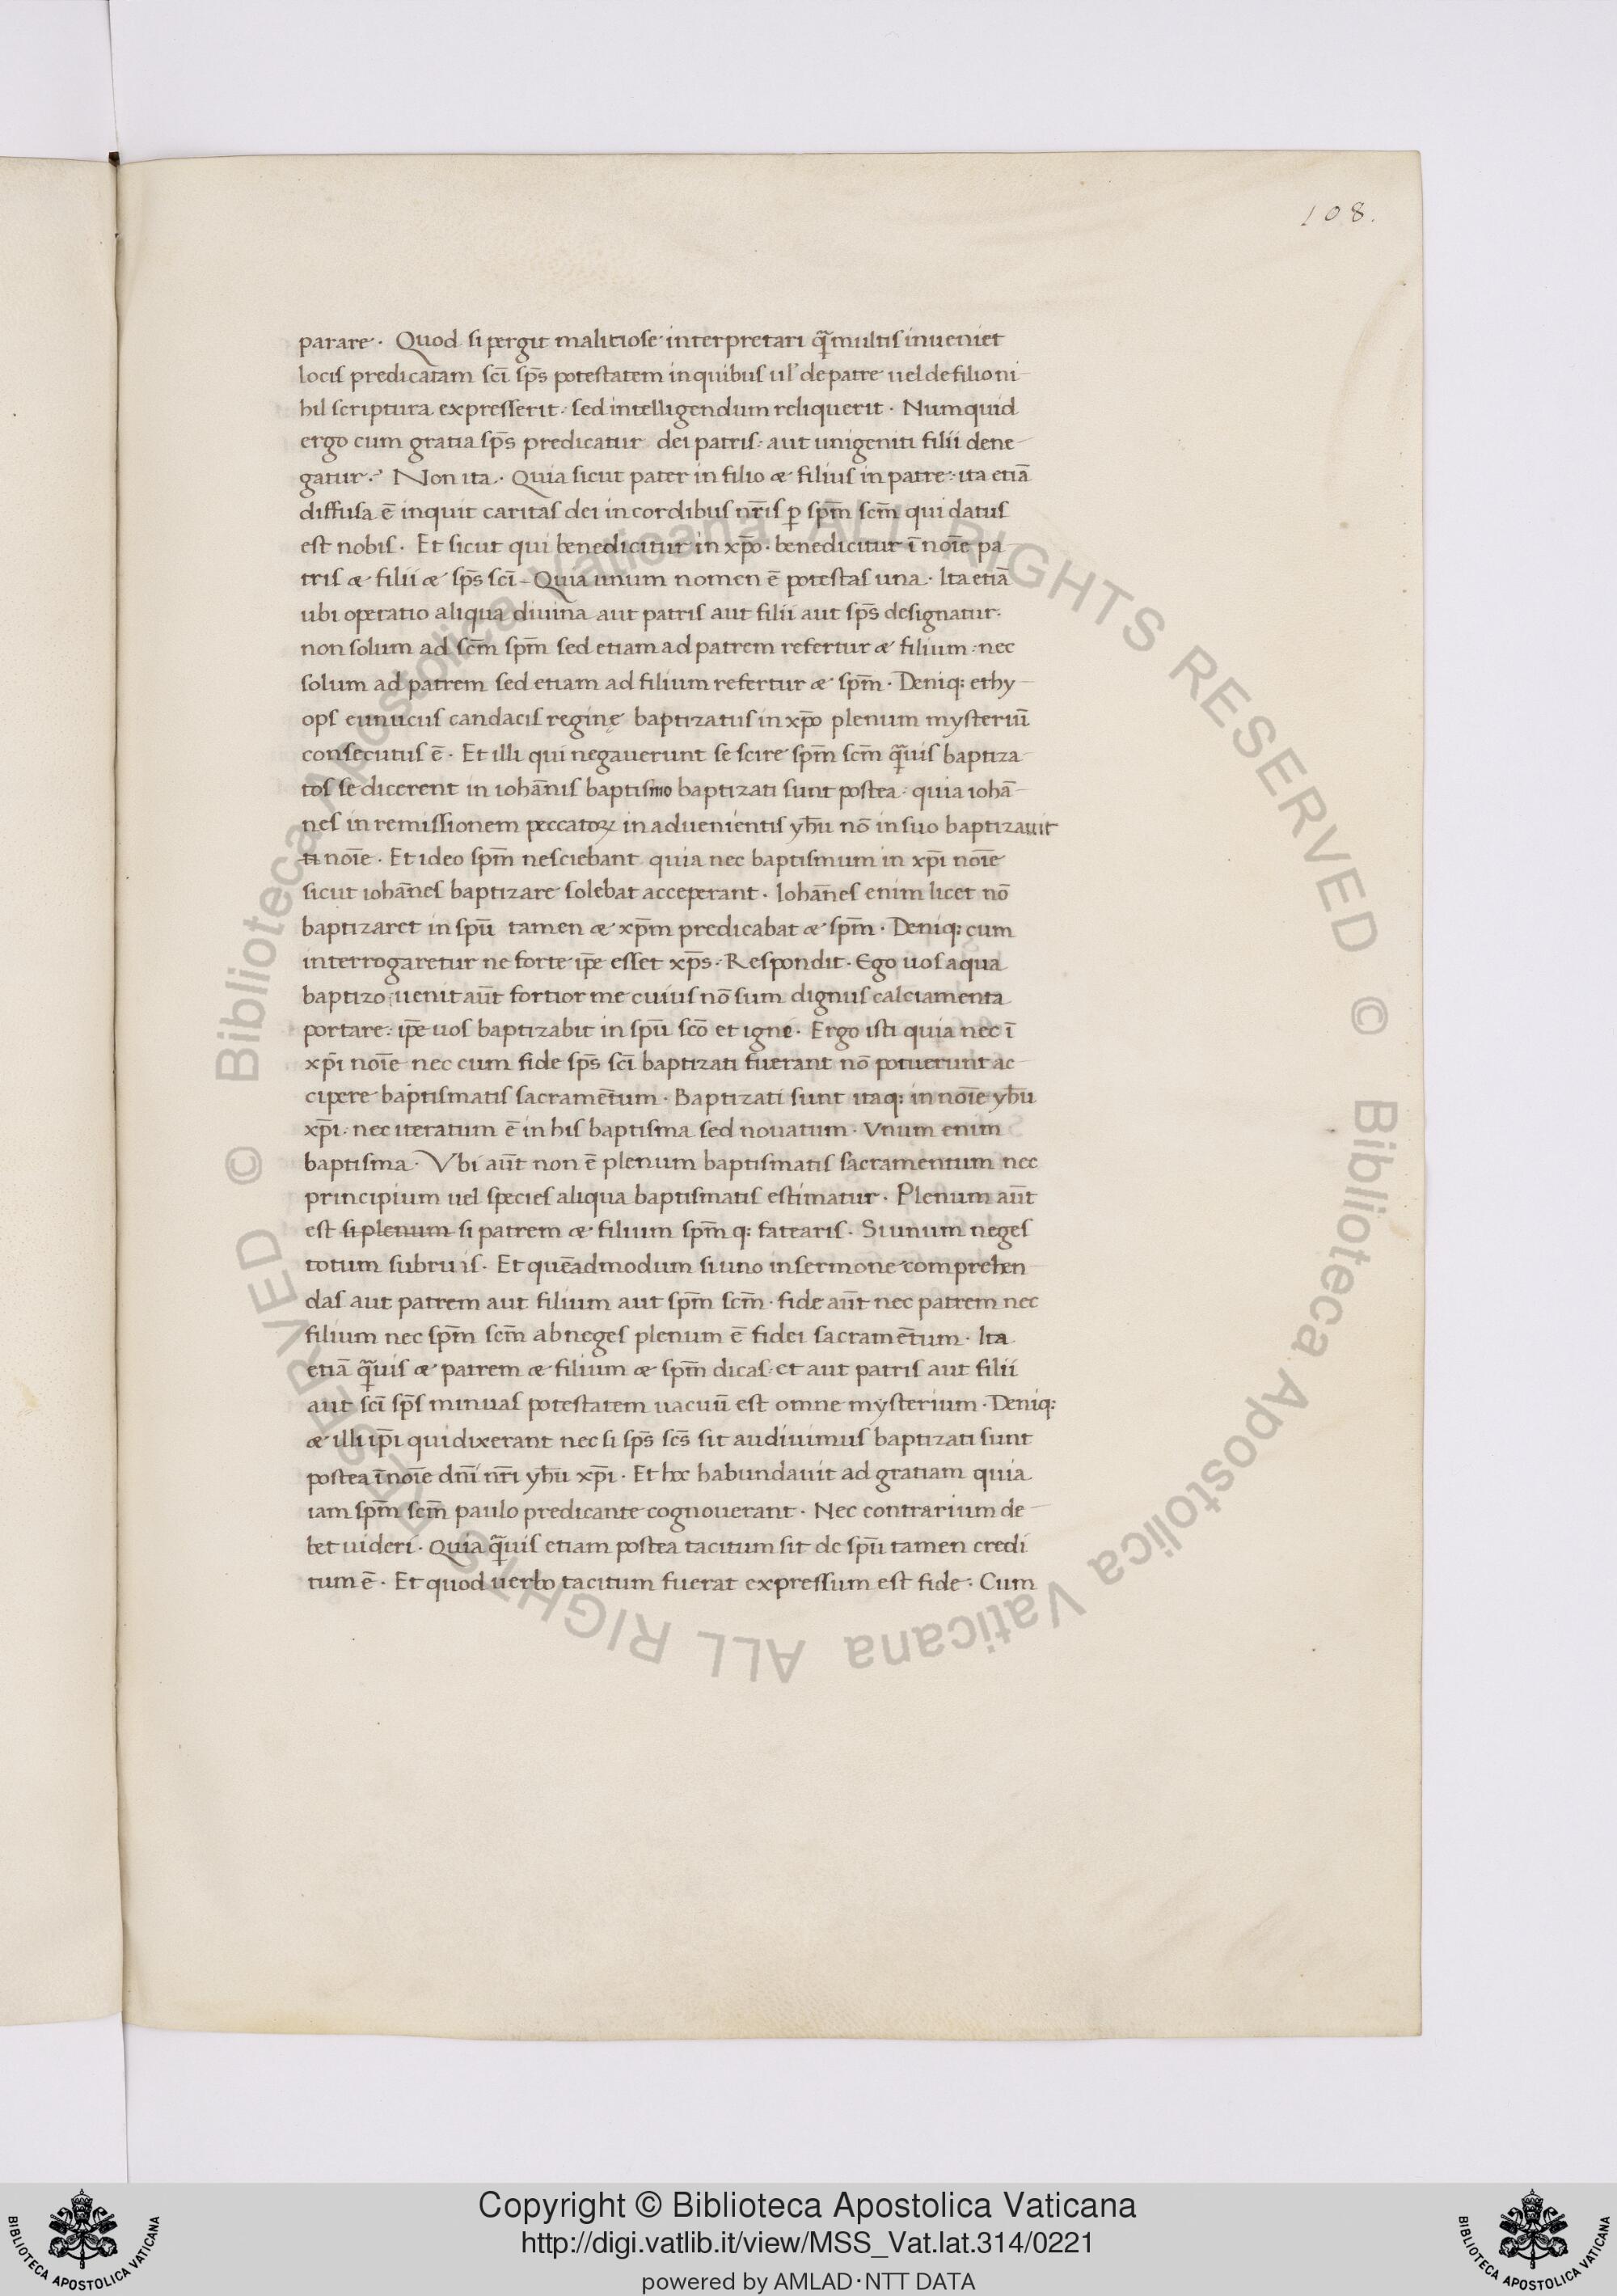 108.
parare. Quod si pergit malitiose interpretari q̄ multis inueniet
locis predicatam sc̄i sp̄s potestatem in quibus ul' de patre uel de filio ni
hil scriptura expresserit: sed intelligendum reliquerit. Numquid
ergo cum gratia sp̄s predicatur dei patris: aut unigeniti filii dene
gatur? Non ita. Quia sicut pater in filio & filius in patre: ita etiā
diffusa ē inquit caritas dei in cordibus nr̄is ꝑ sp̄m sc̄m qui datus
est nobis. Et sicut qui benedicitur in xp̄o. benedicitur ī noīe pa
tris & filii & sp̄s sc̄i. Quia unum nomen ē potestas una. Ita etiā
ubi operatio aliqua diuina aut patris aut filii aut sp̄s designatur.
non solum ad sc̄m sp̄m sed etiam ad patrem refertur & filium: nec
solum ad patrem sed etiam ad filium refertur & sp̄m. Deniq: ethy
ops eunucus candacis reginę baptizatus in xp̄o plenum mysteriū
consecutus ē. Et illi qui negauerunt se scire sp̄m sc̄m q̄uis baptiza
tos se dicerent in iohānis baptismo baptizati sunt postea: quia iohā
nes in remissionem peccatoꝝ in aduenientis yh̄u nō in suo baptizauit
ti noīe. Et ideo sp̄m nesciebant quia nec baptismum in xp̄i noīe
sicut iohānes baptizare solebat acceperant. Iohānes enim licet nō
baptizaret in sp̄u tamen & xp̄m predicabat & sp̄m. Deniq: cum
interrogaretur ne forte ip̄e esset xp̄s. Respondit. Ego uos aqua
baptizo: uenit aūt fortior me cuius nō sum dignus calciamenta
portare: ip̄e uos baptizabit in sp̄u sc̄o et igne. Ergo isti quia nec ī
xp̄i noīe nec cum fide sp̄s sc̄i baptizati fuerant nō potuerunt ac
cipere baptismatis sacramētum. Baptizati sunt itaq: in noīe yh̄u
xp̄i. nec iteratum ē in his baptisma sed nouatum. Vnum enim
baptisma. Vbi aūt non ē plenum baptismatis sacramentum nec
principium uel species aliqua baptismatis estimatur. Plenum aūt
est si plenum si patrem & filium sp̄m q: fatearis. Si unum neges
totum subruis. Et quēadmodum si uno in sermone comprehen
das aut patrem aut filium aut sp̄m sc̄m. fide aūt nec patrem nec
filium nec sp̄m sc̄m abneges plenum ē fidei sacramētum. Ita
etiā q̄uis & patrem & filium & sp̄m dicas: et aut patris aut filii
aut sc̄i sp̄s minuas potestatem uacuū est omne mysterium. Deniq:
& illi ip̄i qui dixerant nec si sp̄s sc̄s sit audiuimus baptizati sunt
postea ī noīe dn̄i nr̄i yh̄u xp̄i. Et hoc habundauit ad gratiam quia
iam sp̄m sc̄m paulo predicante cognouerant. Nec contrarium de
bet uideri. Quia q̄uis etiam postea tacitum sit de sp̄u tamen credi
tum ē. Et quod uerbo tacitum fuerat expressum est fide. Cum
© Biblioteca Apostolica Vaticana ALL RIGHTS RESERVED © Biblioteca Apostolica Vaticana ALL RIGHTS RESERVED
Copyright © Biblioteca Apostolica Vaticana
http://digi.vatlib.it/view/MSS_Vat.lat.314/0221
powered by AMLAD·NTT DATA
BIBLIOTECA APOSTOLICA VATICANA
BIBLIOTECA APOSTOLICA VATICANA